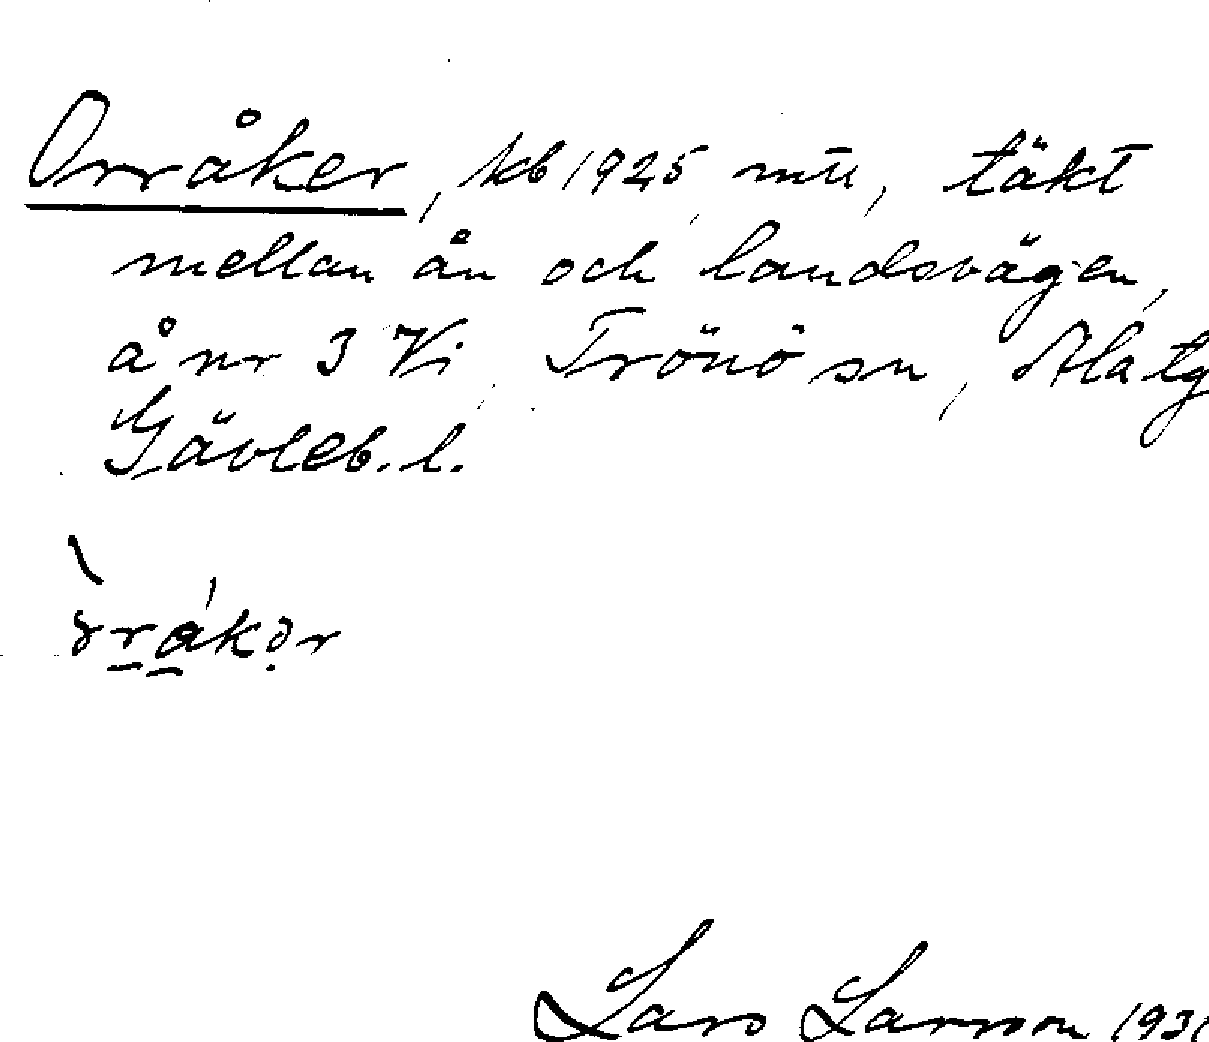 Orråker, kb 1925, mtl, täkt
mellan ån och landsvägen,
å nr 3 Vi, Trönö sn, Ala tg
Gävleb. l.
Lars Larsson 1931